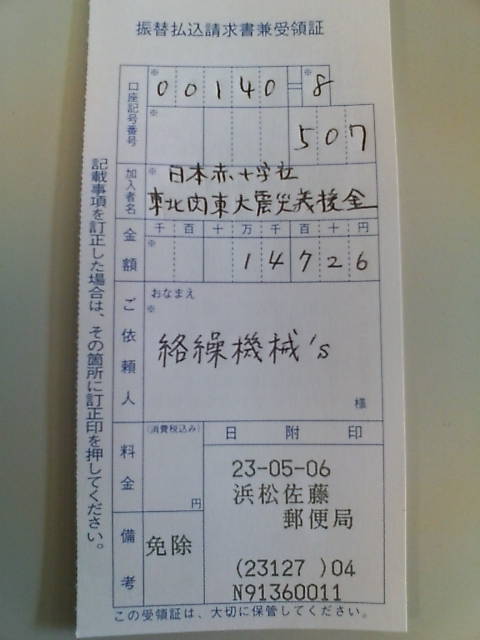 振替払込請求書兼受領証
口座記号番号
※
00140
※
8
※
507
加入者名
※
日本赤十字社
東北関東大震災義援金
金額
千百十万千百十円
※
14726
ご依頼人
おなまえ
※
絡繰機械's
様
料金
(消費税込み)
円
日附印
23-05-06
浜松佐藤
郵便局
(23127 )04
N91360011
備考
免除
記載事項を訂正した場合は、その箇所に訂正印を押してください。
この受領証は、大切に保管してください。